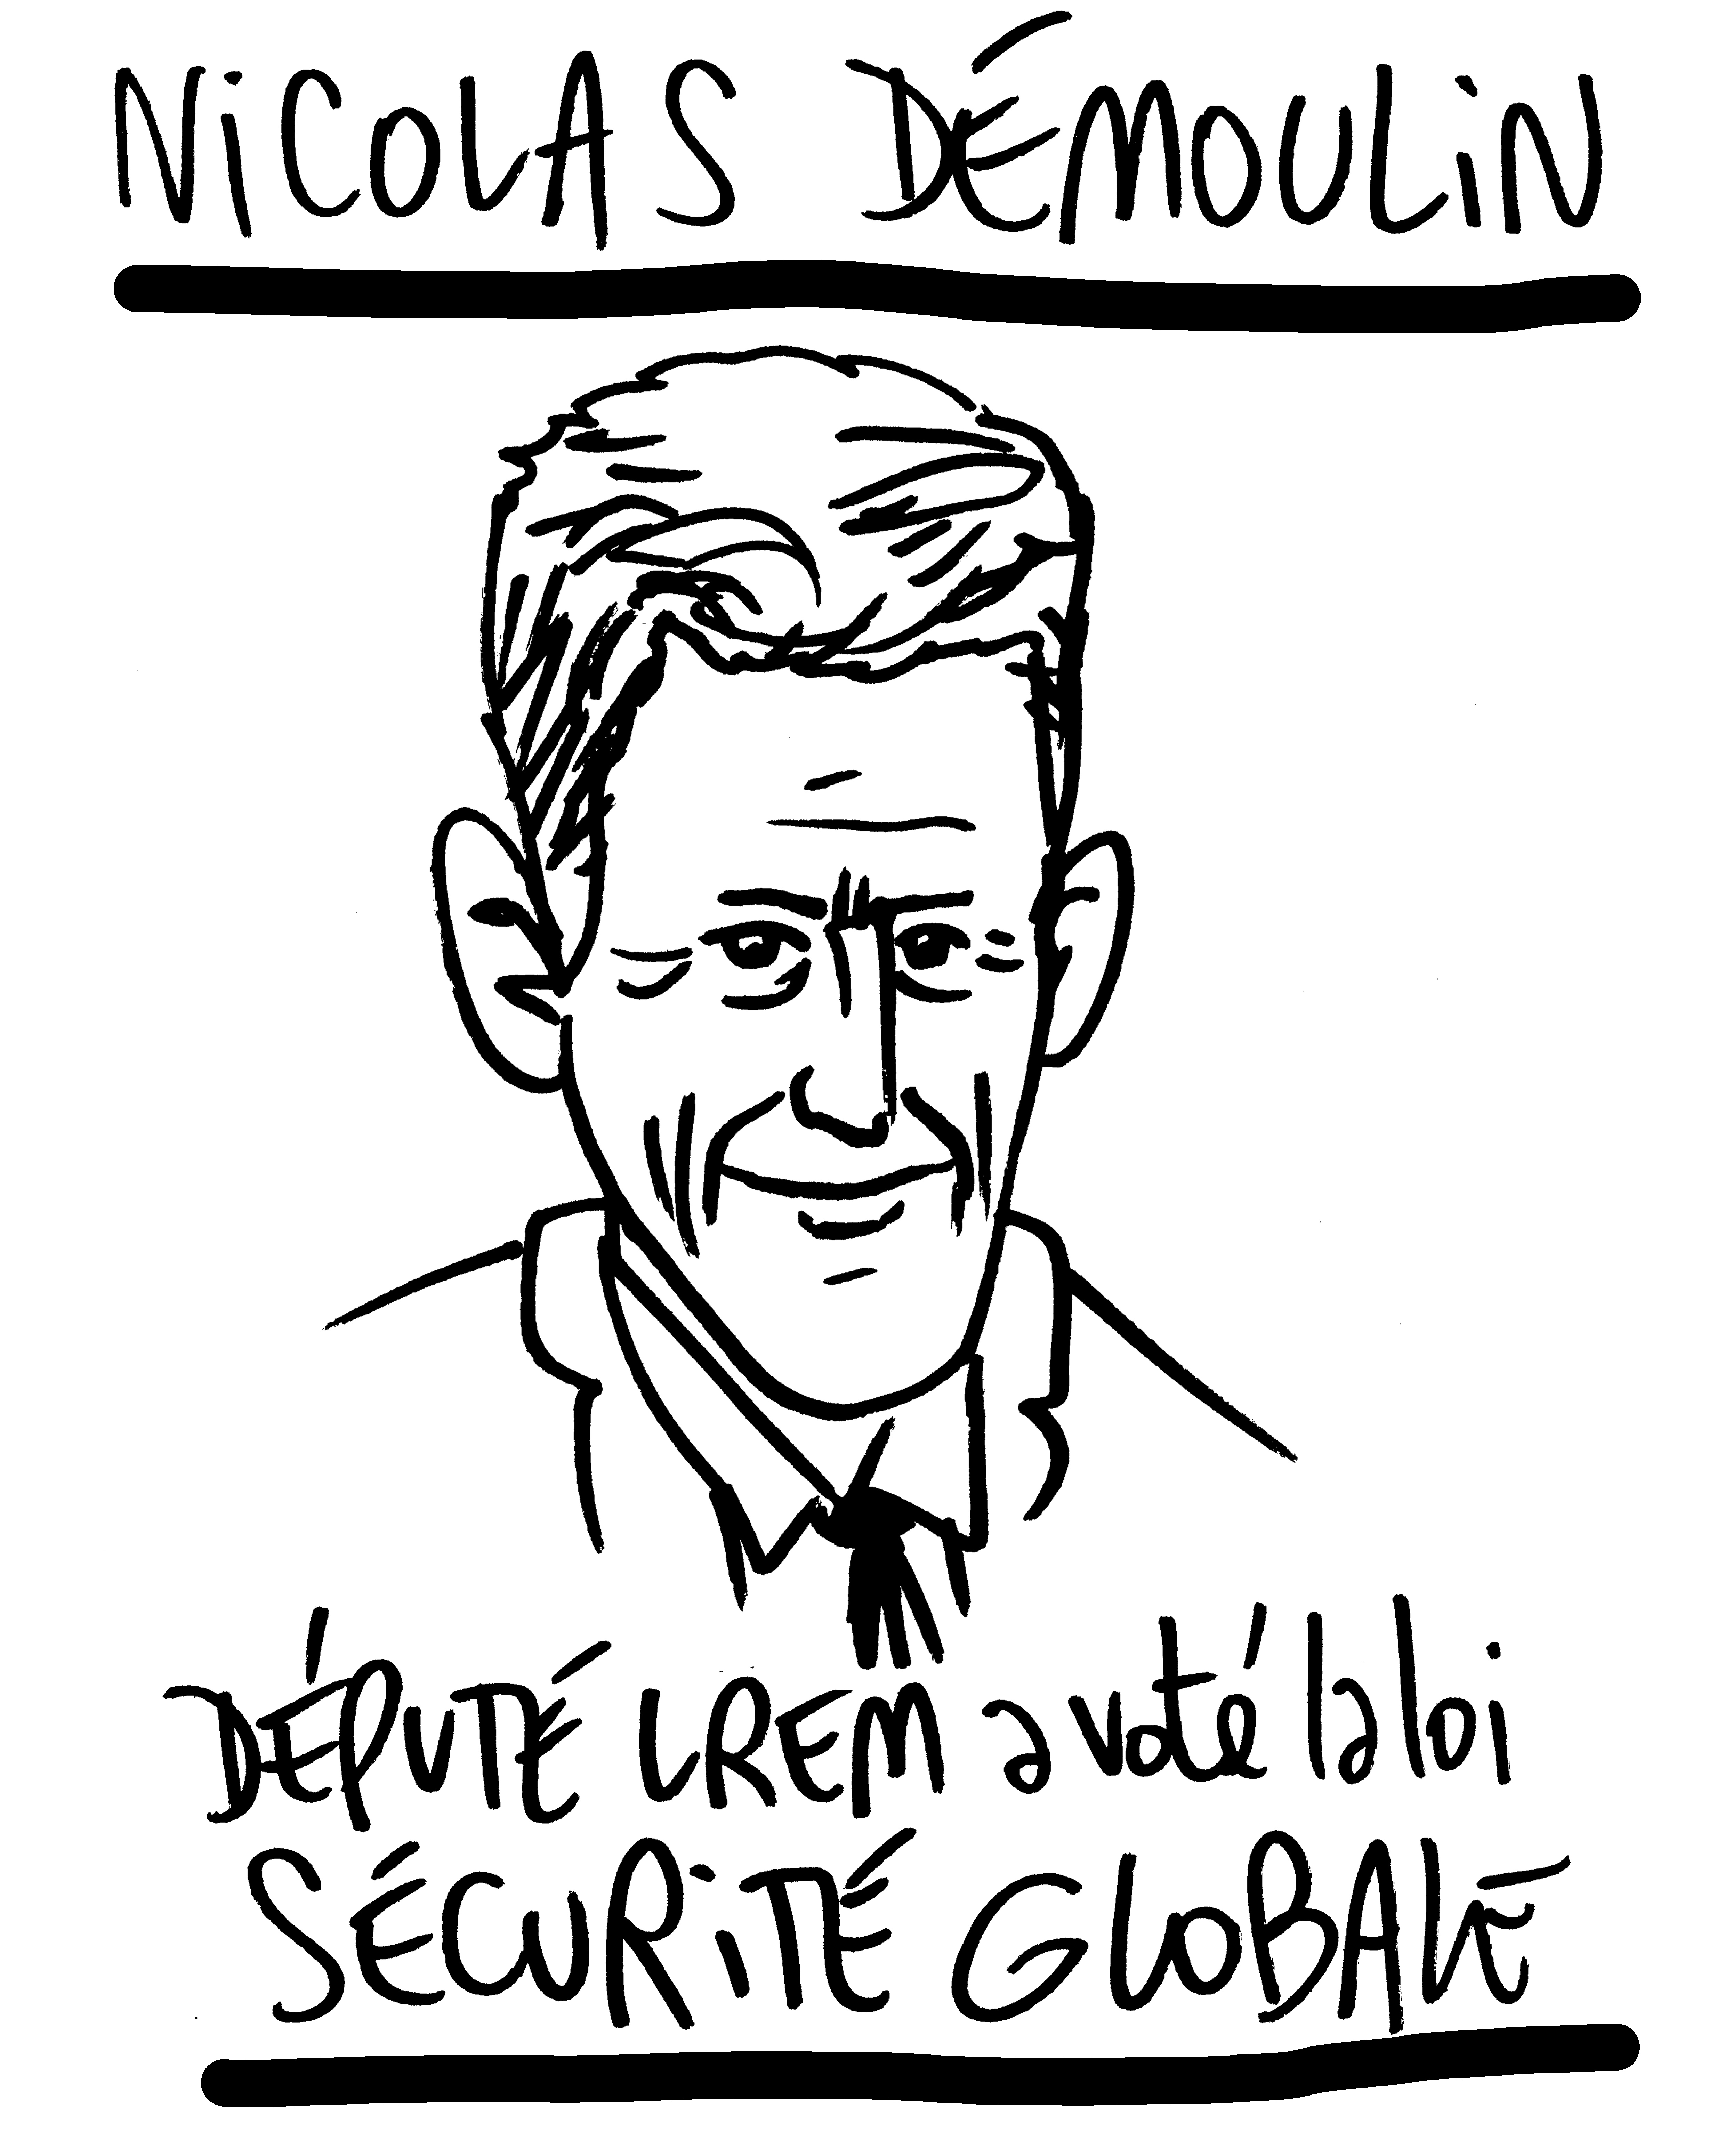 NiCOLAS DÉMOULiN
DÉPUTÉ LREM a voté la loi
SÉCURiTÉ GLOBALE